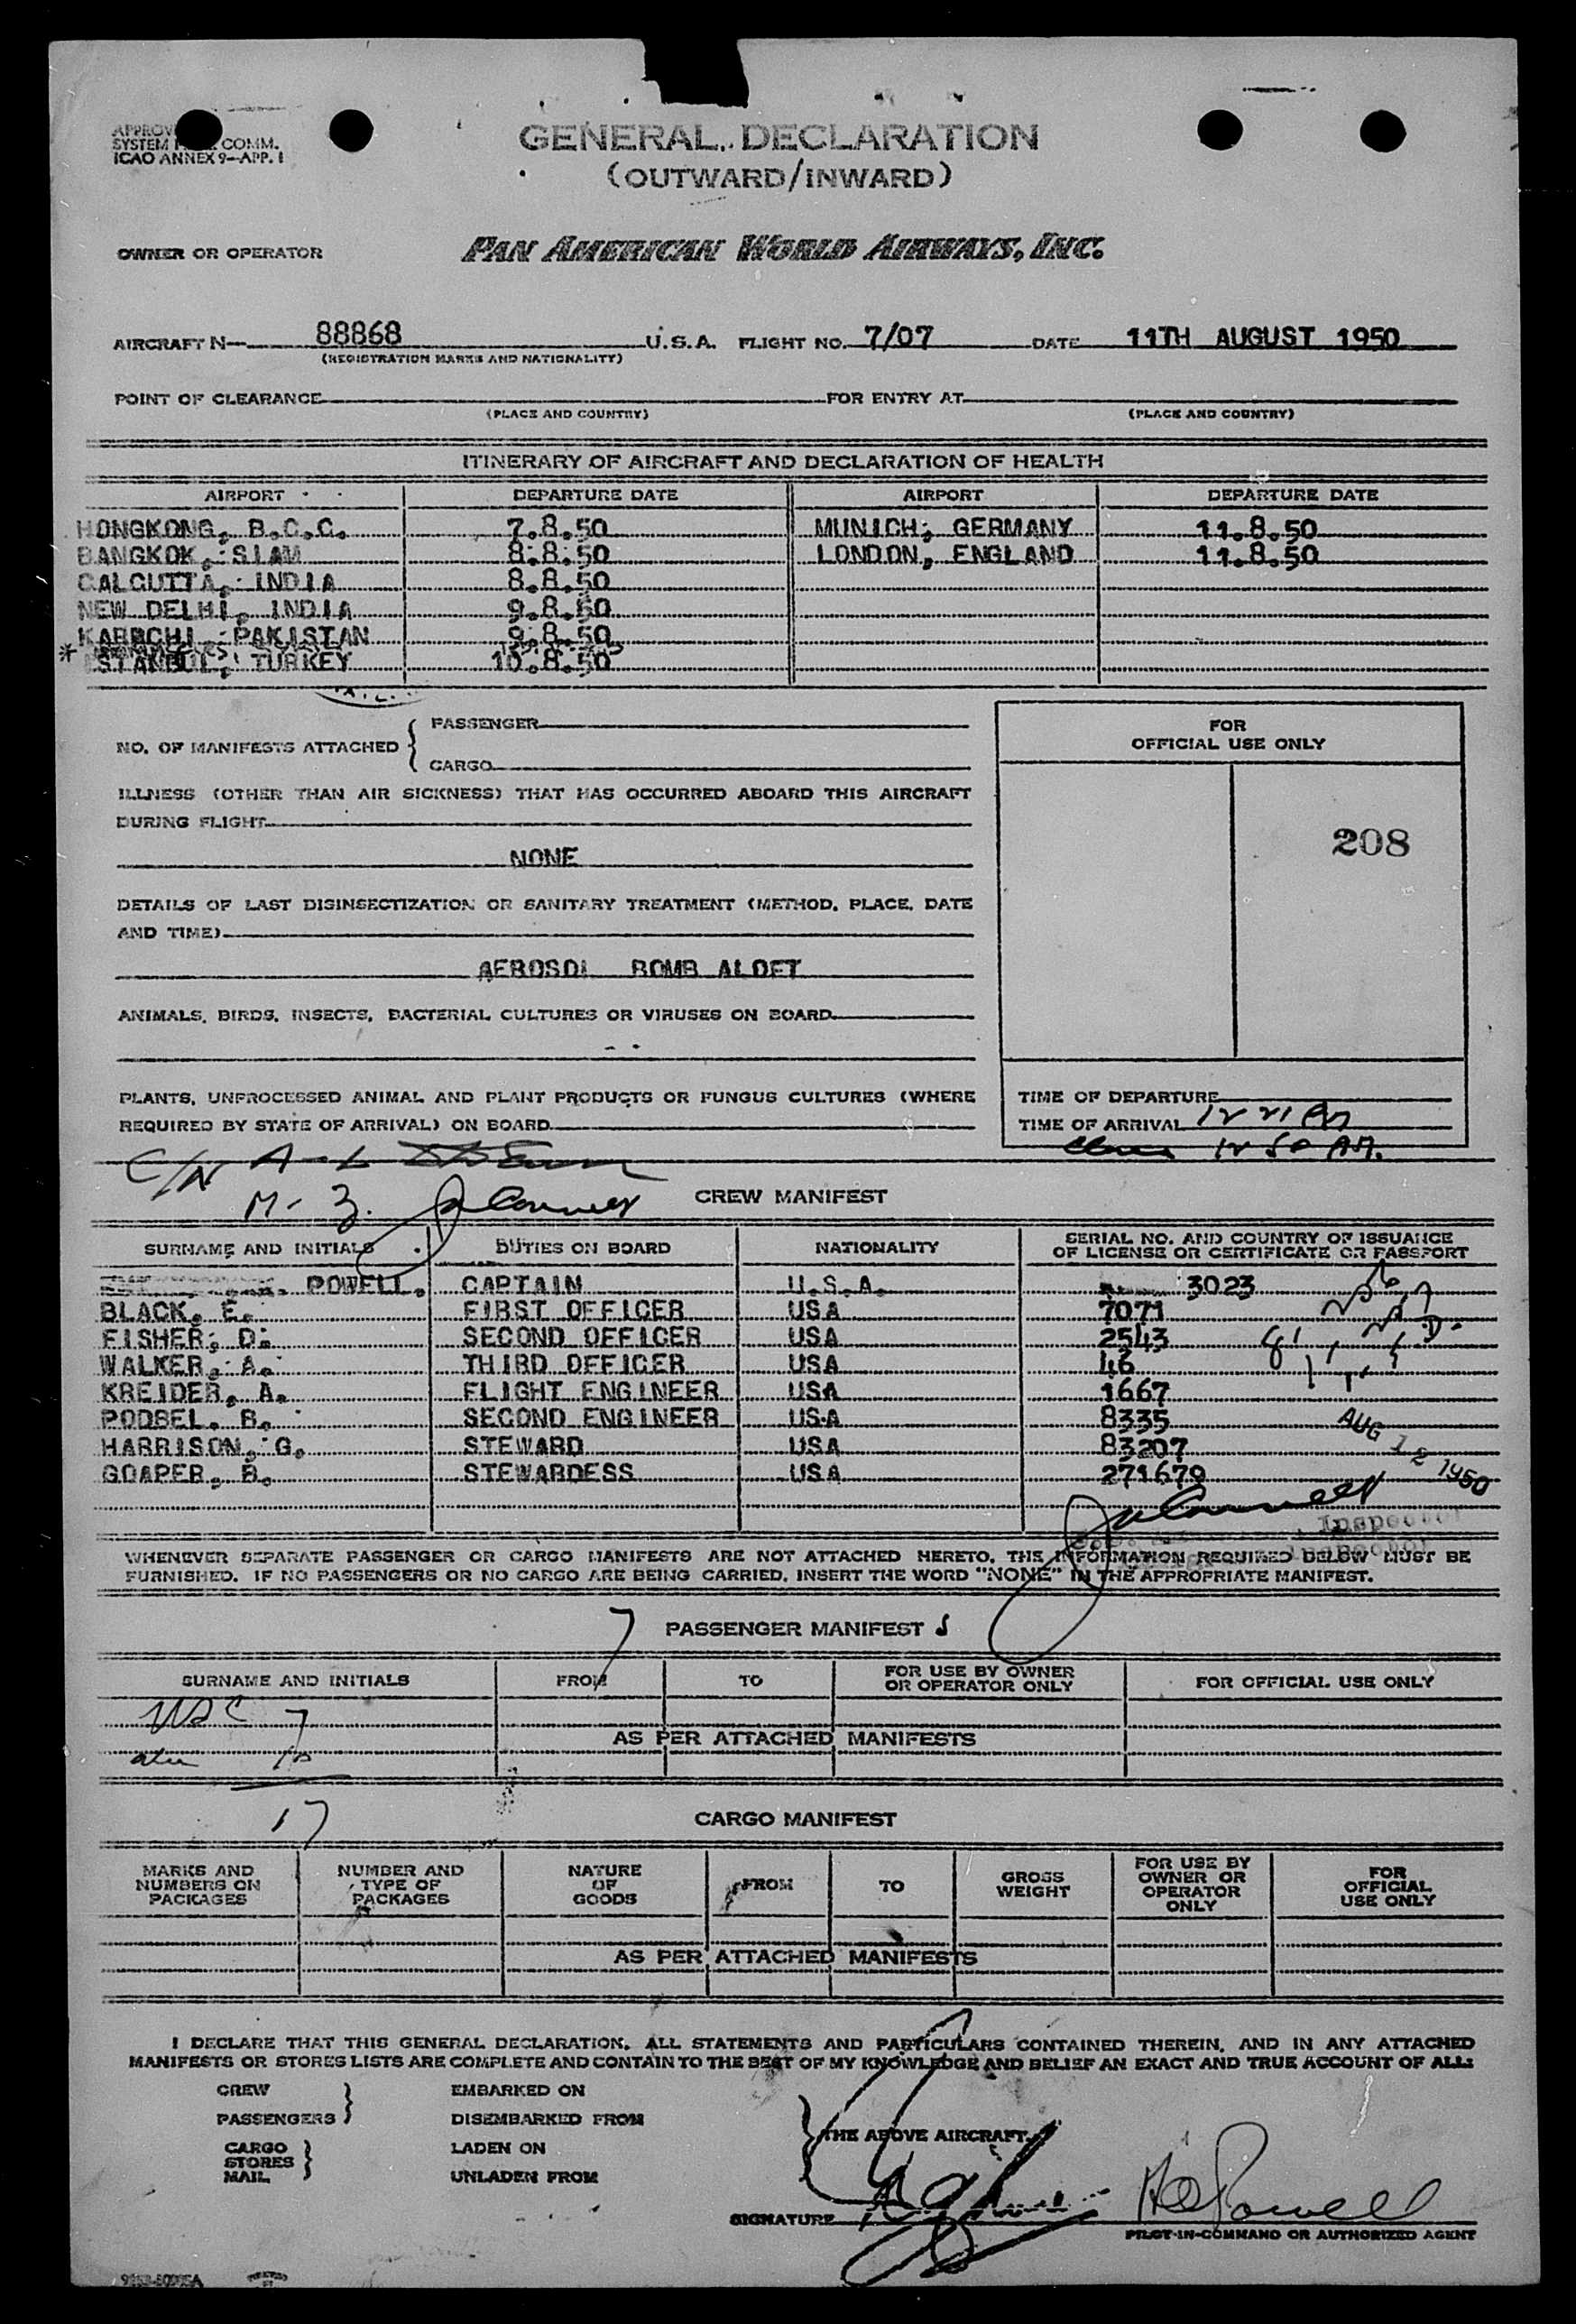 SYSTEM COMM.
ICAO ANNEX 9—APP. 1
GENERAL DECLARATION
(OUTWARD/INWARD)
OWNER OR OPERATOR PAN AMERICAN WORLD AIRWAYS, INC.
AIRCRAFT N— 88868 U.S.A. FLIGHT NO. 7/07 DATE 11TH AUGUST 1950
(REGISTRATION MARKS AND NATIONALITY)
POINT OF CLEARANCE FOR ENTRY AT
(PLACE AND COUNTRY) (PLACE AND COUNTRY)
ITINERARY OF AIRCRAFT AND DECLARATION OF HEALTH
AIRPORT DEPARTURE DATE AIRPORT DEPARTURE DATE
HONGKONG, B.C.C. 7.8.50 MUNICH, GERMANY 11.8.50
BANGKOK, SIAM 8.8.50 LONDON, ENGLAND 11.8.50
CALCUTTA, INDIA 8.8.50
NEW DELHI, INDIA 9.8.50
KARACHI, PAKISTAN 9.8.50
* ISTANBUL, TURKEY 10.8.50
NO. OF MANIFESTS ATTACHED { PASSENGER
CARGO
FOR
OFFICIAL USE ONLY
ILLNESS (OTHER THAN AIR SICKNESS) THAT HAS OCCURRED ABOARD THIS AIRCRAFT
DURING FLIGHT
208
NONE
DETAILS OF LAST DISINSECTIZATION OR SANITARY TREATMENT (METHOD, PLACE, DATE
AND TIME)
AEROSOL BOMB ALOFT
ANIMALS, BIRDS, INSECTS, BACTERIAL CULTURES OR VIRUSES ON BOARD
- -
PLANTS, UNPROCESSED ANIMAL AND PLANT PRODUCTS OR FUNGUS CULTURES (WHERE
REQUIRED BY STATE OF ARRIVAL) ON BOARD
TIME OF DEPARTURE
TIME OF ARRIVAL 12 21 AM
12 50 AM.
C/N A-
M- 3.
CREW MANIFEST
SURNAME AND INITIALS DUTIES ON BOARD NATIONALITY SERIAL NO. AND COUNTRY OF ISSUANCE
OF LICENSE OR CERTIFICATE OR PASSPORT
POWELL. CAPTAIN U.S.A. 3023
BLACK, E. FIRST OFFICER USA 7071
FISHER, D. SECOND OFFICER USA 2543
WALKER, A. THIRD OFFICER USA 46
KREIDER, A. FLIGHT ENGINEER USA 1667
PODBEL, B. SECOND ENGINEER USA 8335
HARRISON, G. STEWARD USA 83207
GOAPER, B. STEWARDESS USA 271679
AUG 12 1950
Inspector
Inspector
WHENEVER SEPARATE PASSENGER OR CARGO MANIFESTS ARE NOT ATTACHED HERETO, THE INFORMATION REQUIRED BELOW MUST BE
FURNISHED. IF NO PASSENGERS OR NO CARGO ARE BEING CARRIED, INSERT THE WORD "NONE" IN THE APPROPRIATE MANIFEST.
7
PASSENGER MANIFEST
SURNAME AND INITIALS FROM TO FOR USE BY OWNER
OR OPERATOR ONLY FOR OFFICIAL USE ONLY
USC 7
AS PER ATTACHED MANIFESTS
10
17
CARGO MANIFEST
MARKS AND
NUMBERS ON
PACKAGES
NUMBER AND
TYPE OF
PACKAGES
NATURE
OF
GOODS
FROM
TO
GROSS
WEIGHT
FOR USE BY
OWNER OR
OPERATOR
ONLY
FOR
OFFICIAL
USE ONLY
AS PER ATTACHED MANIFESTS
I DECLARE THAT THIS GENERAL DECLARATION, ALL STATEMENTS AND PARTICULARS CONTAINED THEREIN, AND IN ANY ATTACHED
MANIFESTS OR STORES LISTS ARE COMPLETE AND CONTAIN TO THE BEST OF MY KNOWLEDGE AND BELIEF AN EXACT AND TRUE ACCOUNT OF ALL:
CREW EMBARKED ON
PASSENGERS } DISEMBARKED FROM
THE ABOVE AIRCRAFT.
CARGO LADEN ON
STORES }
MAIL UNLADEN FROM
SIGNATURE Powell
PILOT-IN-COMMAND OR AUTHORIZED AGENT